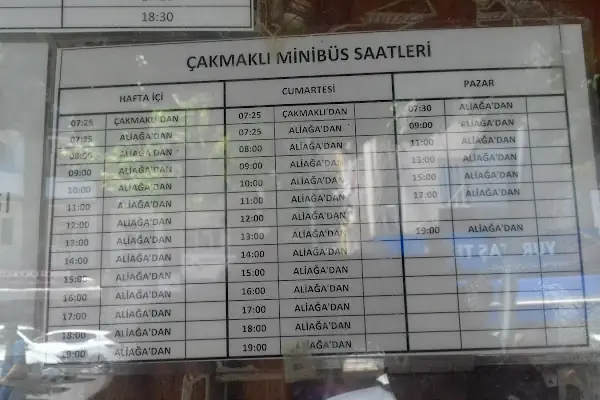 18:30
ÇAKMAKLI MİNİBÜS SAATLERİ
HAFTA İÇİ CUMARTESİ PAZAR
07:25 ÇAKMAKLI'DAN 07:25 ÇAKMAKLI'DAN 07:30 ALİAĞA'DAN
07:25 ALİAĞA'DAN 07:25 ALİAĞA'DAN 09:00 ALİAĞA'DAN
08:00 ALİAĞA'DAN 08:00 ALİAĞA'DAN 11:00 ALİAĞA'DAN
09:00 ALİAĞA'DAN 09:00 ALİAĞA'DAN 13:00 ALİAĞA'DAN
10:00 ALİAĞA'DAN 10:00 ALİAĞA'DAN 15:00 ALİAĞA'DAN
11:00 ALİAĞA'DAN 11:00 ALİAĞA'DAN 17:00 ALİAĞA'DAN
12:00 ALİAĞA'DAN 12:00 ALİAĞA'DAN
13:00 ALİAĞA'DAN 13:00 ALİAĞA'DAN 19:00 ALİAĞA'DAN
14:00 ALİAĞA'DAN 14:00 ALİAĞA'DAN
15:00 ALİAĞA'DAN 15:00 ALİAĞA'DAN
16:00 ALİAĞA'DAN 16:00 ALİAĞA'DAN
17:00 ALİAĞA'DAN 17:00 ALİAĞA'DAN
18:00 ALİAĞA'DAN 18:00 ALİAĞA'DAN
19:00 ALİAĞA'DAN 19:00 ALİAĞA'DAN